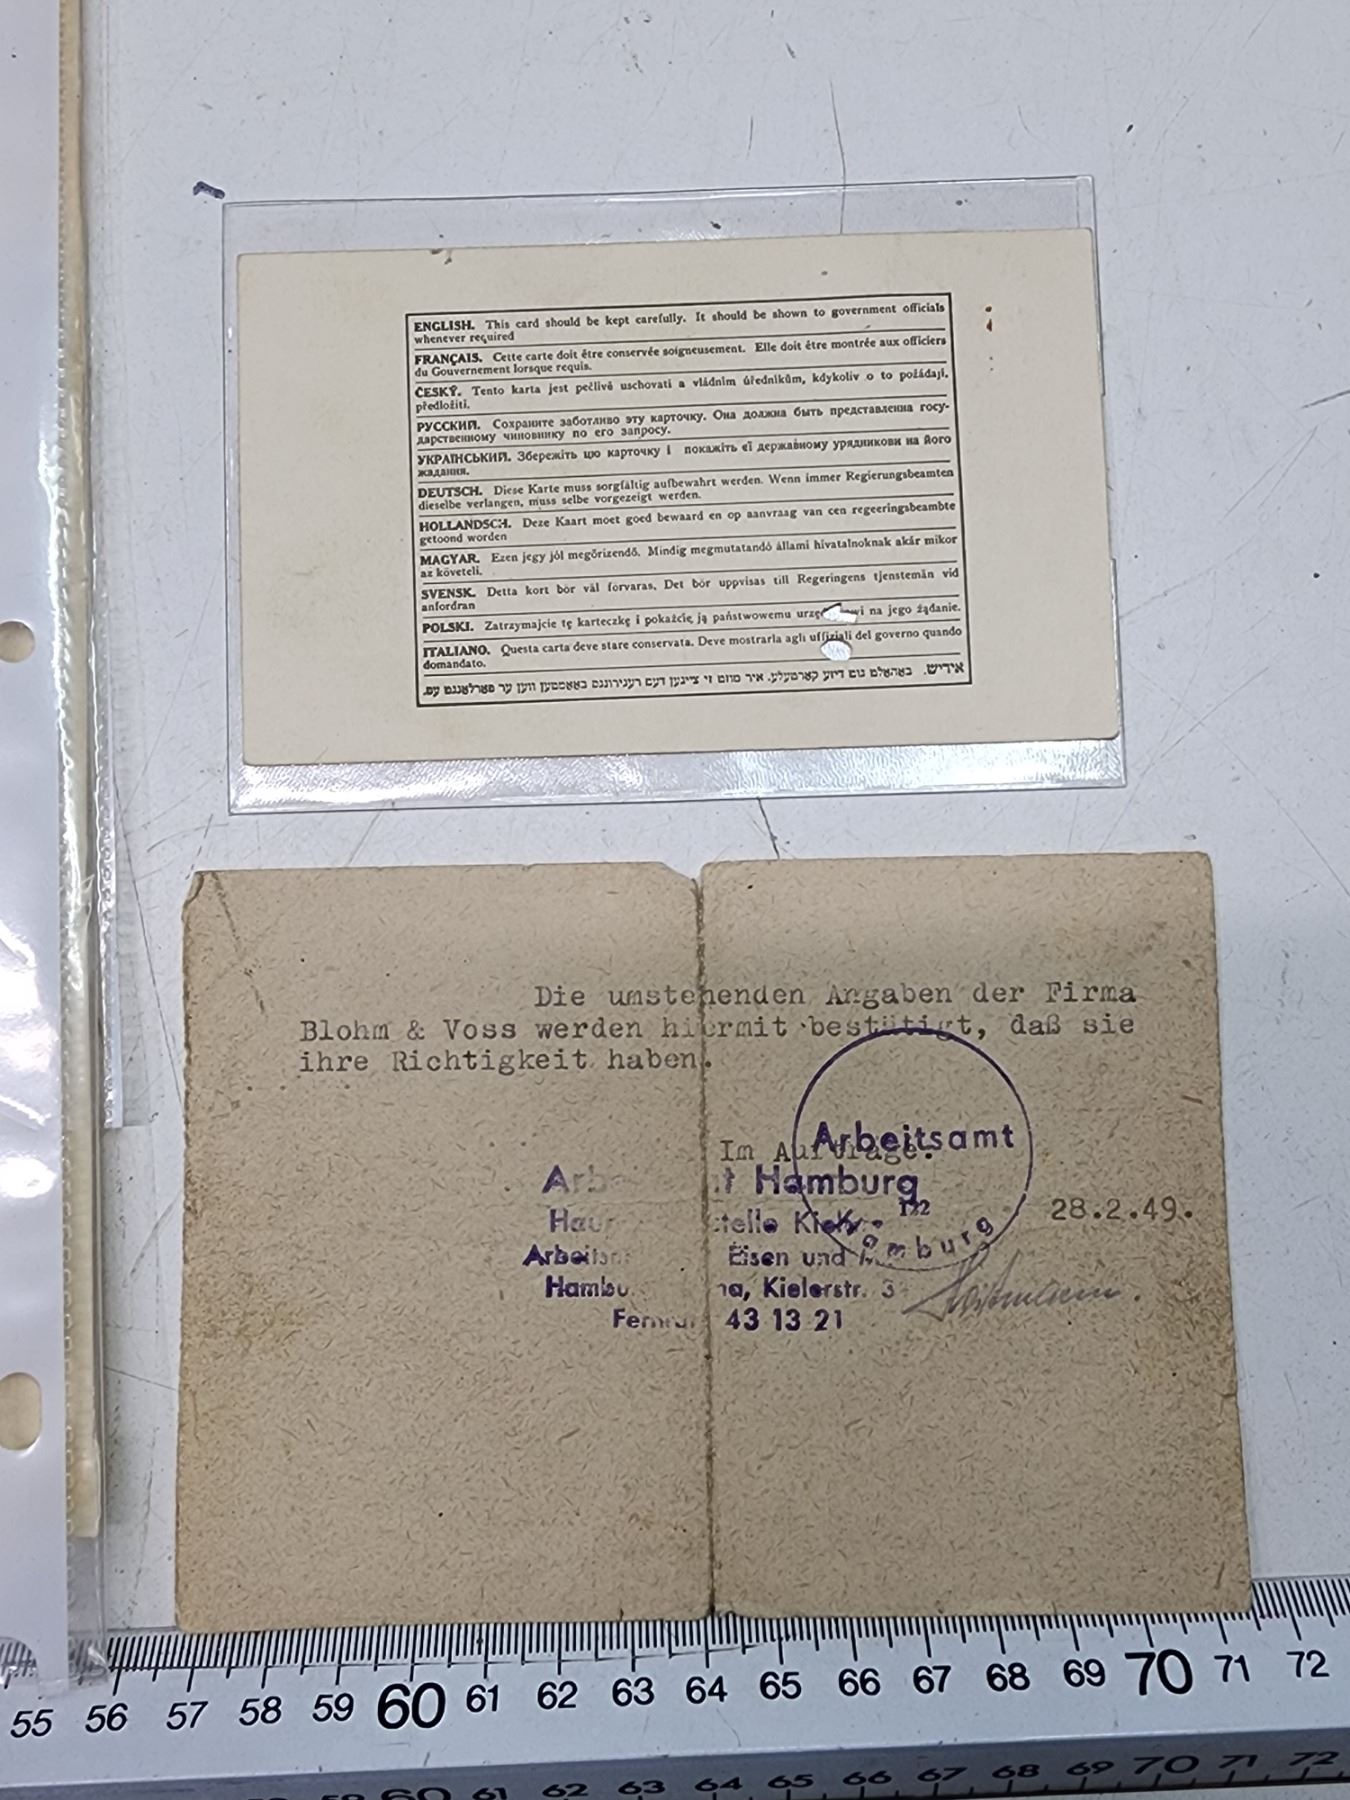 ENGLISH. This card should be kept carefully. It should be shown to government officials
whenever required
FRANÇAIS. Cette carte doit être conservée soigneusement. Elle doit être montrée aux officiers
du Gouvernement lorsque requis.
ČESKÝ. Tento karta jest pečlivě uschovati a vládním úředníkům, kdykoliv o to požádají,
předložiti.
РУССКИЙ. Сохраните заботливо эту карточку. Она должна быть представлена госу-
дарственному чиновнику по его запросу.
УКРАІНСЬКИЙ. Збережіть цю карточку і покажіть єї державному урядникови на його
жадання.
DEUTSCH. Diese Karte muss sorgfältig aufbewahrt werden. Wenn immer Regierungsbeamten
dieselbe verlangen, muss selbe vorgezeigt werden.
HOLLANDSCH. Deze Kaart moet goed bewaard en op aanvraag van een regeeringsbeambte
getoond worden
MAGYAR. Ezen jegy jól megőrizendő. Mindig megmutatandó állami hivatalnoknak akár mikor
az követeli.
SVENSK. Detta kort bör väl förvaras. Det bör uppvisas till Regeringens tjenstemän vid
anfordran
POLSKI. Zatrzymajcie tę karteczkę i pokażcie ją państwowemu na jego żądanie.
ITALIANO. Questa carta deve stare conservata. Deve mostrarla agli uffiziali del governo quando
domandato.
אידיש. באהאלט גוט דיזע קארטעלע. איר מוזט זי צייגען דעם רעגירונגס באאמטען ווען ער פארלאנגט עס.
Die umstehenden Angaben der Firma
Blohm & Voss werden hiermit bestätigt, daß sie
ihre Richtigkeit haben.
Im Auftrage:
Arbeitsamt
Hamburg
122
Hamburg
28.2.49.
Eisen und
Kielerstr. 3
43 13 21
55 56 57 58 59 60 61 62 63 64 65 66 67 68 69 70 71 72
60 61 62 63 64 65 66 67 68 69 70 71 72